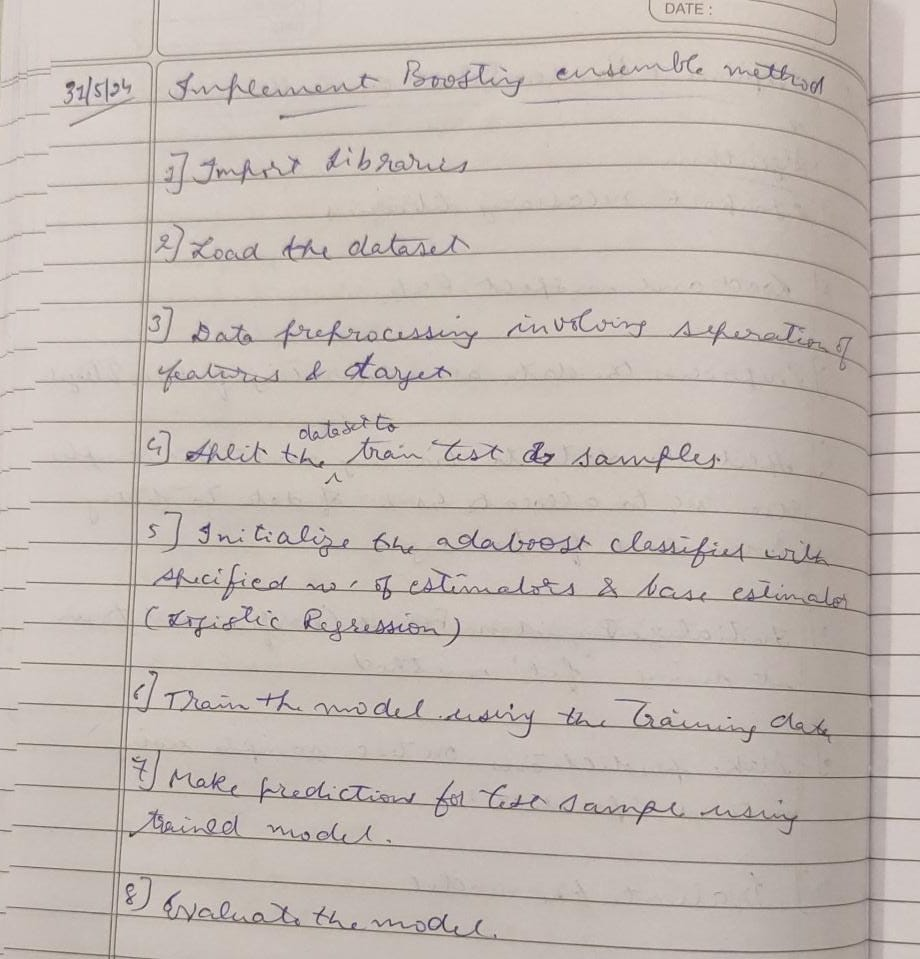 DATE :
31/5/24 Implement Boosting ensemble method
1] Import Libraries
2] Load the dataset
3] Data preprocessing involving seperation of
features & target
dataset to
4] Split the ^ train test samples.
5] Initialize the adaboost classifier with
specified no. of estimators & base estimator
(Logistic Regression)
6] Train the model using the Training data
7] Make predictions for test sample using
trained model.
8] Evaluate the model.